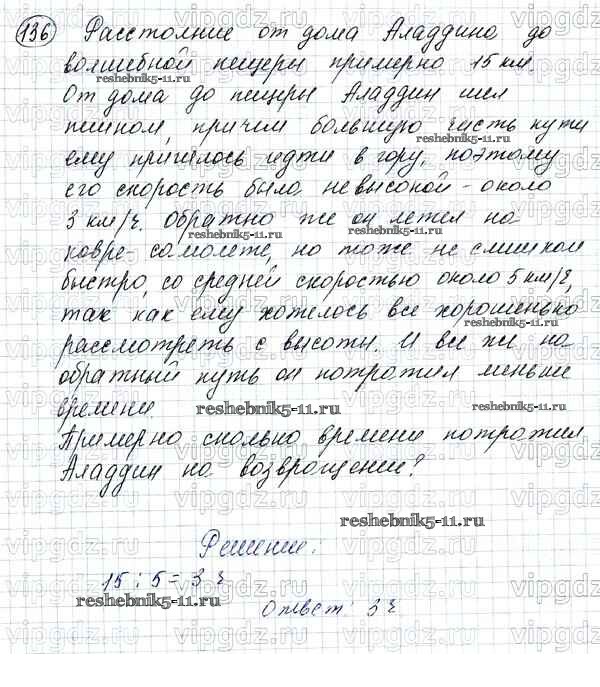 136 Расстояние от дома Аладдина до
волшебной пещеры примерно 15 км.
reshebnik5-11.ru
От дома до пещеры Аладдин шел
пешком, причем большую часть пути
reshebnik5-11.ru
ему пришлось идти в гору, поэтому
его скорость была невысокой - около
3 км/ч. Обратно же он летел на
reshebnik5-11.ru
ковре-самолете, но тоже не слишком
быстро, со средней скоростью около 5 км/ч,
так как ему хотелось все хорошенько
reshebnik5-11.ru
рассмотреть с высоты. И все же на
обратный путь он потратил меньше
времени
reshebnik5-11.ru reshebnik5-11.ru
Примерно сколько времени потратил
Аладдин на возвращение?
reshebnik5-11.ru
Решение:
15 : 5 = 3 ч
reshebnik5-11.ru
Ответ: 3 ч
vipgdz.ru